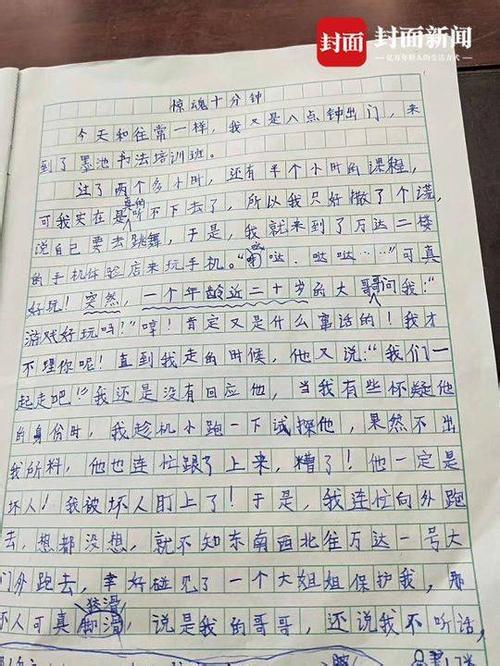 封面 封面新闻
亿万年轻人的生活方式
惊魂十分钟
今天和往常一样，我又是八点钟出门，来
到了墨池书法培训班。
过了两个多小时，还有半个小时的课程，
真的
可我实在是听不下去了，所以我只好撒了个谎，
说自己要去跳舞，于是，我就来到了万达二楼
的手机体验店来玩手机。“哒、哒哒……”可真
好玩！突然，一个年龄近二十岁的大哥哥问我：“
游戏好玩吗？”哼！肯定又是什么事话的！我才
不理你呢！直到我走的时候，他又说：“我们一
起走吧！”我还是没有回应他，当我有些怀疑他
的身份时，我趁机小跑一下试探他，果然不出
我所料，他也连忙跟了上来，糟了！他一定是
坏人！我被坏人盯上了！于是，我连忙向外跑
去，想都没想，就不知东南西北往万达一号大
门外跑去，幸好碰见了一个大姐姐保护我，那
狡滑
坏人可真脚滑，说是我的哥哥，还说我不听话，